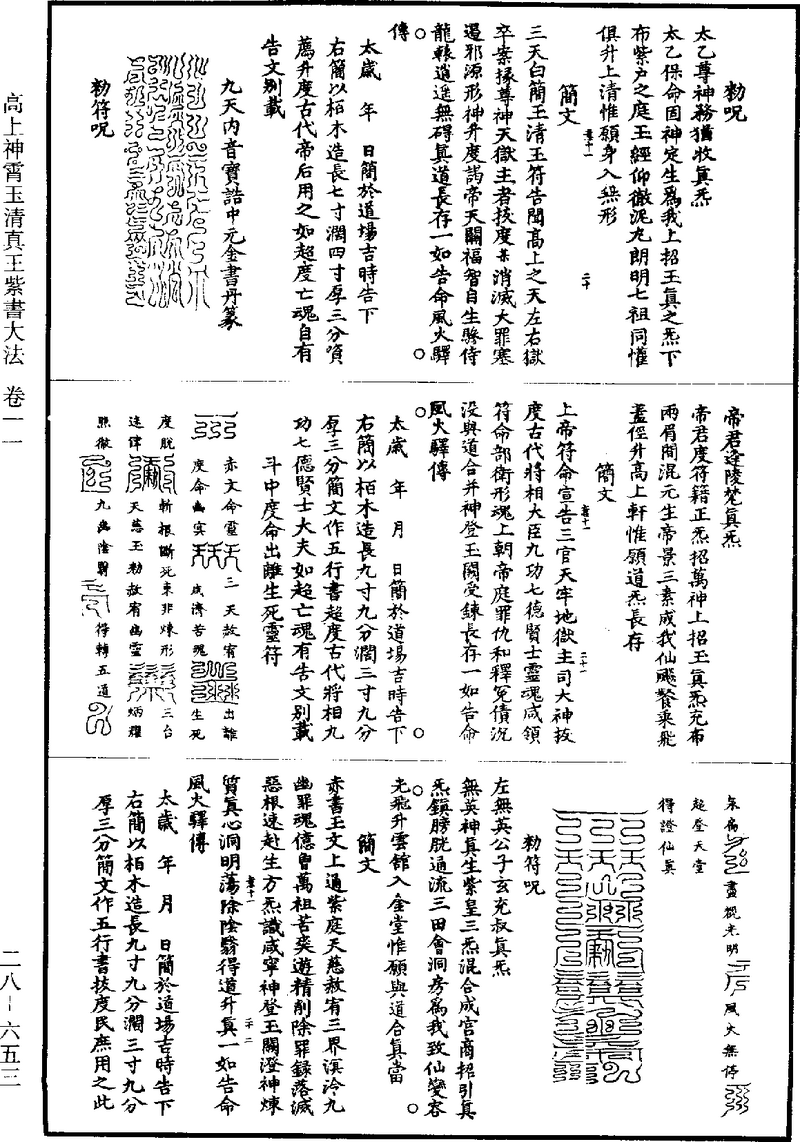 勑呪
太乙尊神務猶收真炁
太乙保命固神定生爲我上招玉真之炁下
布紫户之庭玉經仰徹泥丸朗明七祖同懽
俱升上清惟願身入無形
簡文
三天白簡玉清玉符告聞高上之天左右獄
卒案掾尊神天獄主者拔度 消滅大罪塞
遏邪源形神升度謁帝天闕福智自生驂侍
龍轅逍遥無碍真道長存一如告命風火驛
傳
太歲 年 日簡於道場吉時告下
右簡以栢木造長七寸濶四寸厚三分資
薦升度古代帝后用之如超度亡魂自有
告文别載
九天内音寶誥中元金書丹篆
勑符呪
帝君逢陵梵真炁
帝君度符籍正炁招萬神上招玉真炁充布
兩眉間混元生帝景三素成我仙飈餐乘飛
蓋徑升高上軒惟願道炁長存
簡文
上帝符命宣告三官天牢地獄主司大神拔
度古代將相大臣九功七德賢士靈魂咸領
符命部衛形魂上朝帝庭罪仇和釋冤債沉
没與道合并神登玉闕受鍊長存一如告命
風火驛傳
太歲 年 月 日簡於道場吉時告下
右簡以栢木造長九寸九分濶三寸九分
厚三分簡文作五行書超度古代將相九
功七德賢士大夫如超亡魂有告文别載
斗中度命出離生死靈符
赤文命靈 三天赦宥 出離
度命幽冥 咸濟苦魂 生死
度脱 斬根斷死 束非煉形 三台
逵律 天慈玉勑 赦宥幽靈 炳耀
照徹 九幽陰翳 得轉五道
矣爲 盡覩光明 風火無停
超登天堂
得證仙真
勑符呪
左無英公子玄充叔真炁
無英神真生紫皇三炁混合成宫商招引真
炁鎮膀胱通流三田會洞房爲我致仙變容
光飛升雲館入金堂惟願與道合真當
簡文
赤書玉文上通紫庭天慈赦宥三界溟泠九
幽罪魂億曾萬祖苦爽遊精削除罪録落滅
惡根速赴生方炁識咸寧神登玉闕澄神煉
質真心洞明蕩除陰翳得道升真一如告命
風火驛傳
太歲 年 月 日簡於道場吉時告下
右簡以栢木造長九寸九分濶三寸九分
厚三分簡文作五行書拔度民庶用之此
高上神霄玉清真王紫書大法 卷一一
二八－六五三